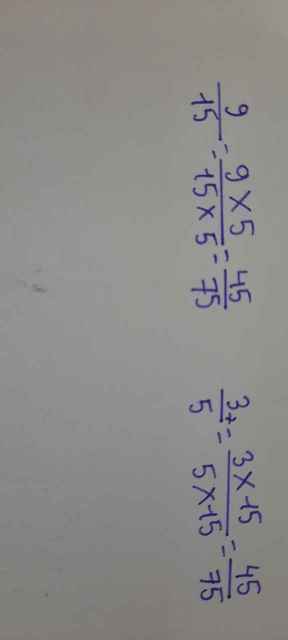 9/15 = 9 x 5/15 x 5 = 45/75
3/5 = 3 x 15/5 x 15 = 45/75